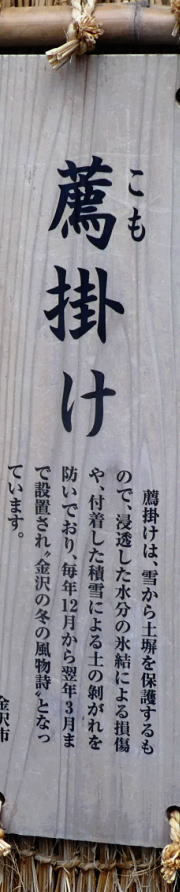 こも
薦掛け
薦掛けは、雪から土塀を保護するも
ので、浸透した水分の氷結による損傷
や、付着した積雪による土の剝がれを
防いでおり、毎年12月から翌年3月ま
で設置され〝金沢の冬の風物詩〟となっ
ています。
金沢市